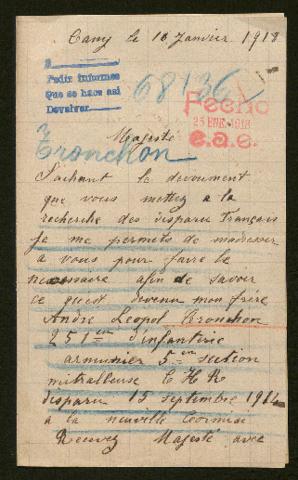 Cany le 16 Janvier 1918
Pedir informes
Que se hace asi
Devolver
68136
Fecho
25 ENE. 1918
e.a.e.
Majesté
Tronchon
Sachant le devoument
que vous mettez a la
recherche des disparu Français
je me permets de m'adresser
a vous pour faire le
necessaire afin de savoir
ce qu'est devenu mon frère
André Leopol Tronchon
251em d'infantrie
armurier 5em section
mitralleuse C H R
disparu 15 septembre 1914
a la neuville
Recevez Majesté avec